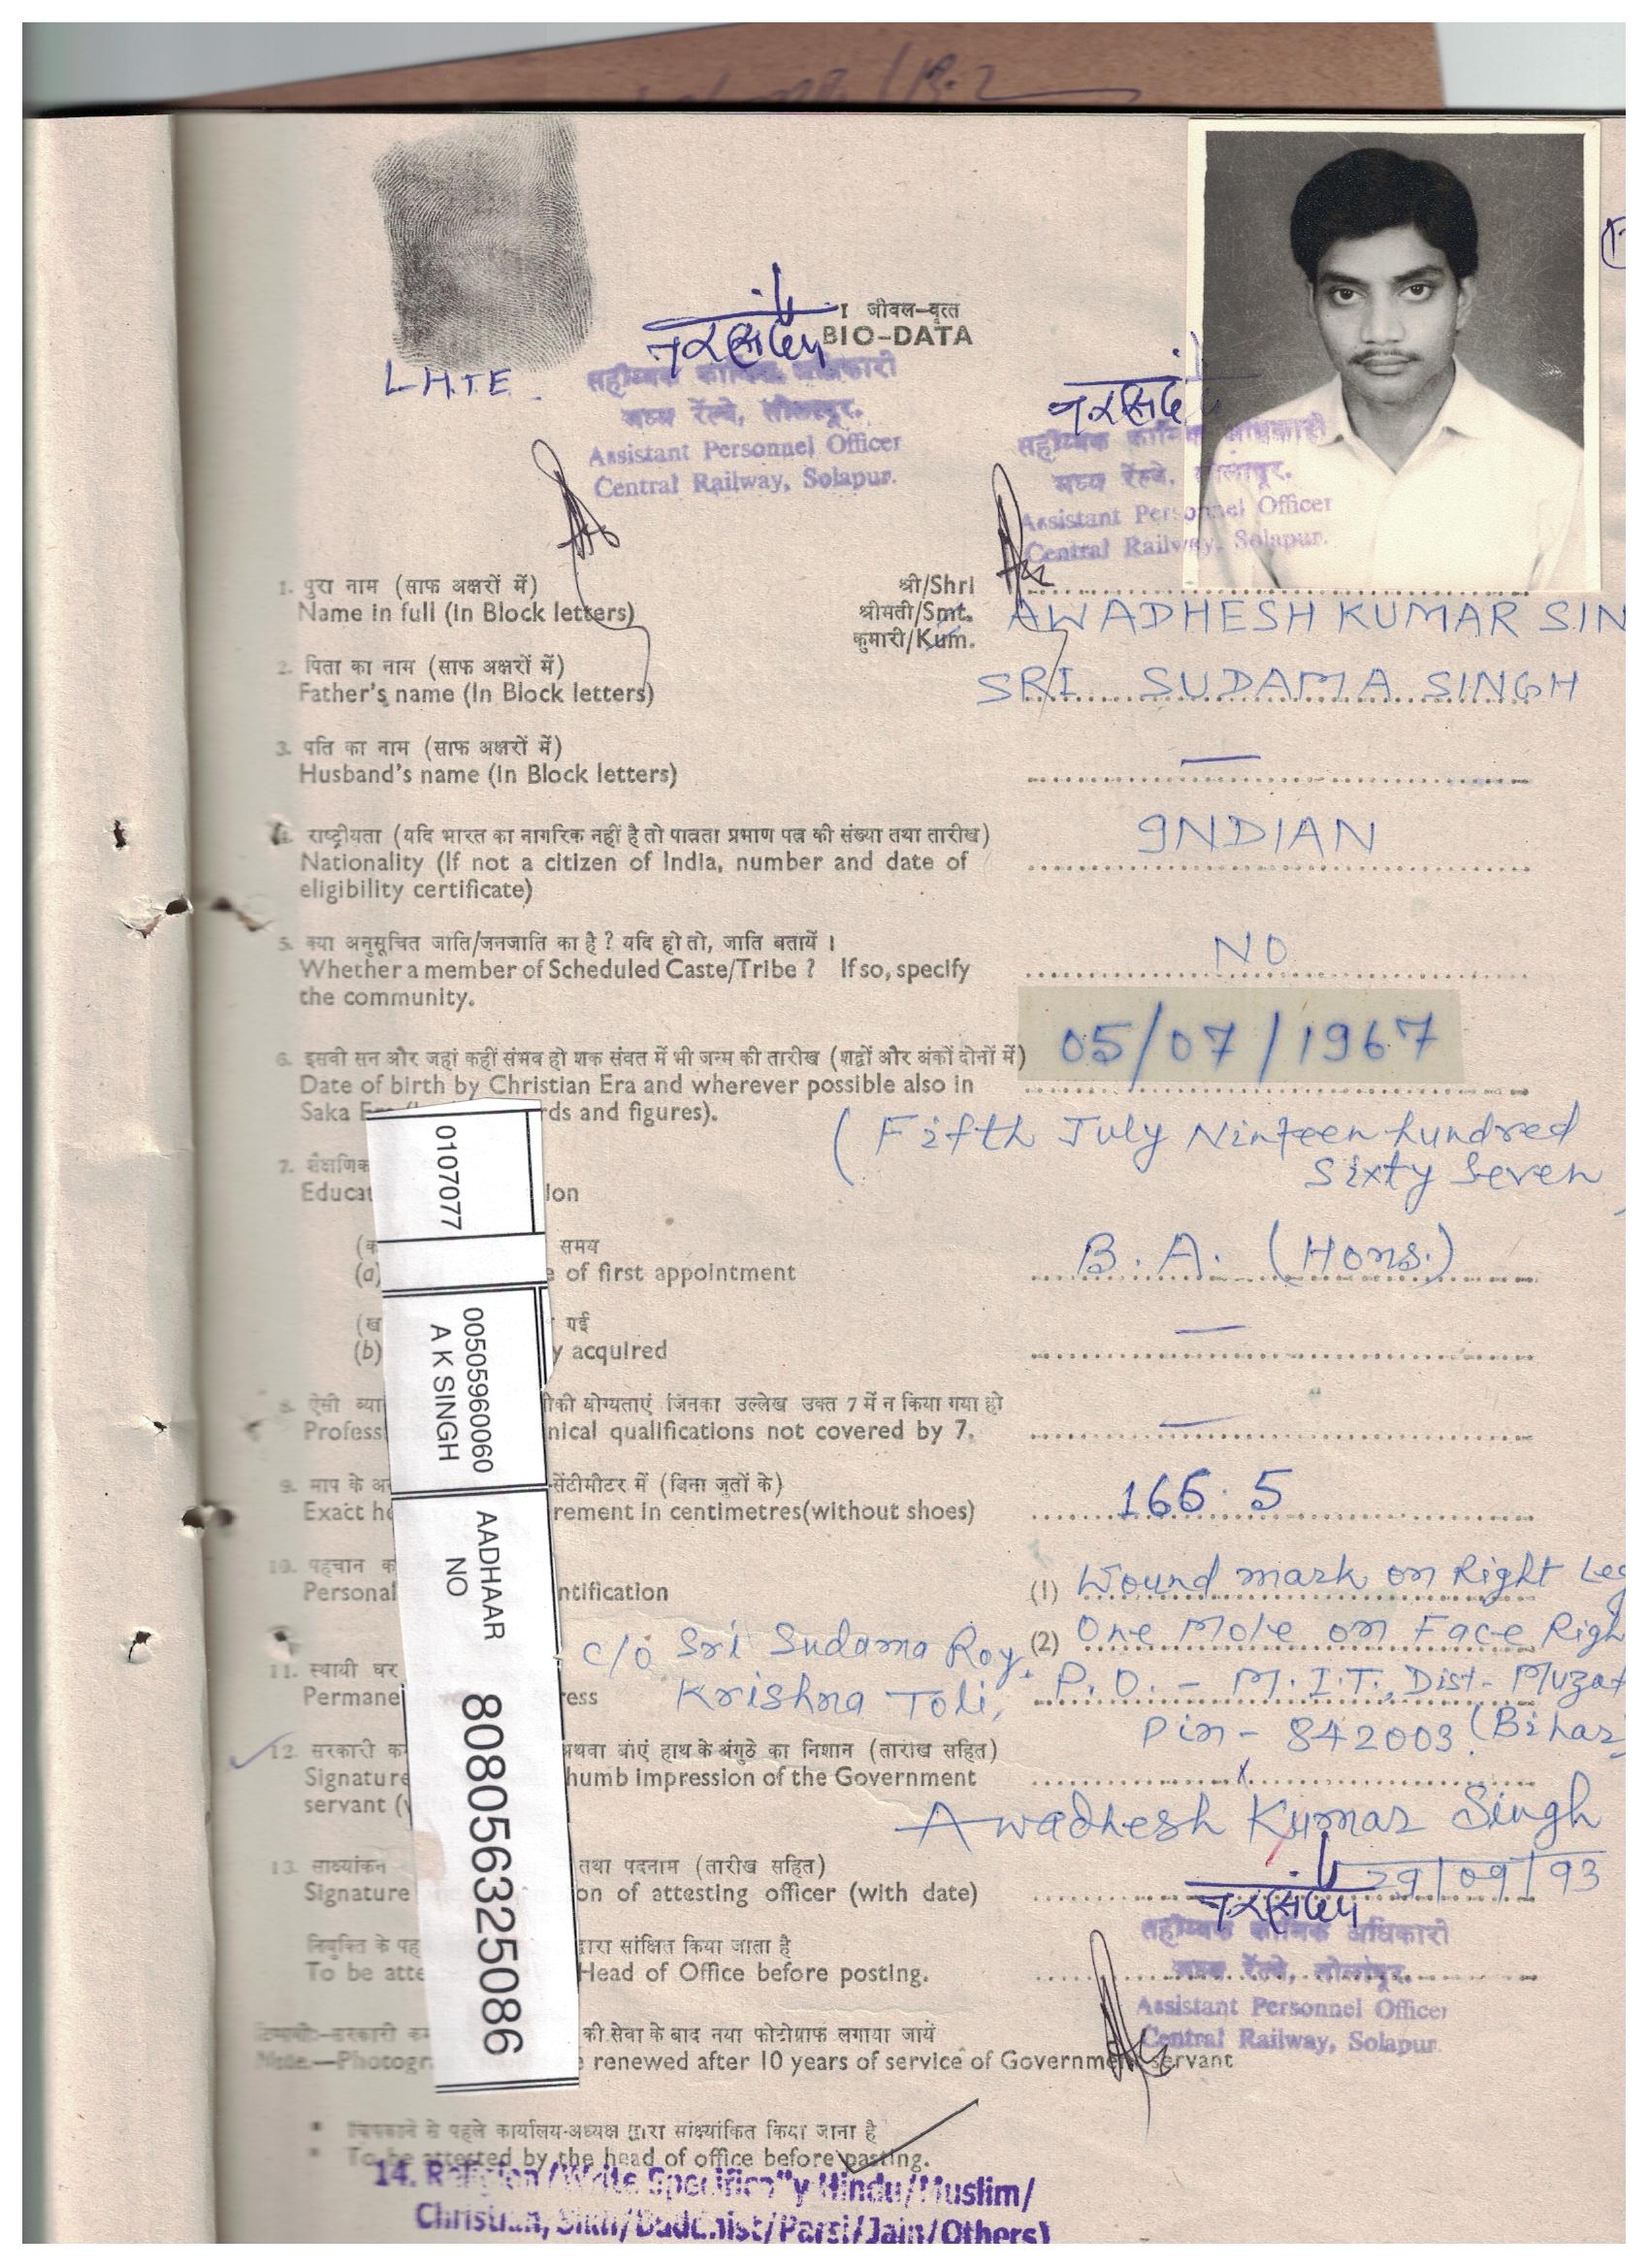 I जीवन-वृत्त
BIO-DATA
L.H.T.E.
नरसिंह
सहाय्यक कार्मिक अधिकारी
मध्य रेल्वे, सोलापूर.
Assistant Personnel Officer
Central Railway, Solapur.
नरसिंह
सहाय्यक कार्मिक अधिकारी
मध्य रेल्वे, सोलापूर.
Assistant Personnel Officer
Central Railway, Solapur.
1. पुरा नाम (साफ अक्षरों में) श्री/Shri
Name in full (In Block letters) श्रीमती/Smt. AWADHESH KUMAR SIN
कुमारी/Kum.
2. पिता का नाम (साफ अक्षरों में)
Father's name (In Block letters) SRI SUDAMA SINGH
3. पति का नाम (साफ अक्षरों में)
Husband's name (In Block letters) —
4. राष्ट्रीयता (यदि भारत का नागरिक नहीं है तो पात्रता प्रमाण पत्र की संख्या तथा तारीख)
Nationality (If not a citizen of India, number and date of INDIAN
eligibility certificate)
5. क्या अनुसूचित जाति/जनजाति का है ? यदि हो तो, जाति बतायें ।
Whether a member of Scheduled Caste/Tribe ? If so, specify NO
the community.
6. इसवी सन और जहां कहीं संभव हो शक संवत में भी जन्म की तारीख (शद्वों और अंकों दोनों में) 05/07/1967
Date of birth by Christian Era and wherever possible also in
Saka E rds and figures).
(Fifth July Ninteen hundred
Sixty Seven)
7. शैक्षणिक
Educat ion
(क समय
(a) e of first appointment B.A. (Hons.)
(ख गई
(b) y acquired —
8. ऐसी व्या ीकी योग्यताएं जिनका उल्लेख उक्त 7 में न किया गया हो
Profess nical qualifications not covered by 7. —
9. माप के अ सेंटीमीटर में (बिना जुतों के)
Exact he rement in centimetres(without shoes) 166.5
10. पहचान क
Personal ntification (1) Wound mark on Right Leg
(2) One Mole on Face Righ
11. स्थायी घर c/o Sri Sudama Roy.
Permane ress Krishna Toli, P.O. - M.I.T., Dist- Muzaf
Pin - 842003 (Bihar)
12. सरकारी क अथवा बांएं हाथ के अंगुठे का निशान (तारीख सहित)
Signature humb impression of the Government
servant (
Awadhesh Kumar Singh
29/09/93
13. साक्ष्यांकन तथा पदनाम (तारीख सहित)
Signature on of attesting officer (with date)
नरसिंह
सहाय्यक कार्मिक अधिकारी
मध्य रेल्वे, सोलापूर.
Assistant Personnel Officer
Central Railway, Solapur.
नियुक्ति के पह द्वारा सांक्षित किया जाता है
To be atte Head of Office before posting.
टिप्पणी:-सरकारी कर्म की सेवा के बाद नया फोटोग्राफ लगाया जायें
Note.—Photogr e renewed after 10 years of service of Government servant
* चिपकाने से पहले कार्यालय-अध्यक्ष द्वारा सांक्ष्यांकित किया जाना है
* To be attested by the head of office before pasting.
14. Religion/(Write Specifically Hindu/Muslim/
Christian/Sikh/Buddhist/Parsi/Jain/Others)
0107077
00505960060
A K SINGH
AADHAAR
NO
808056325086